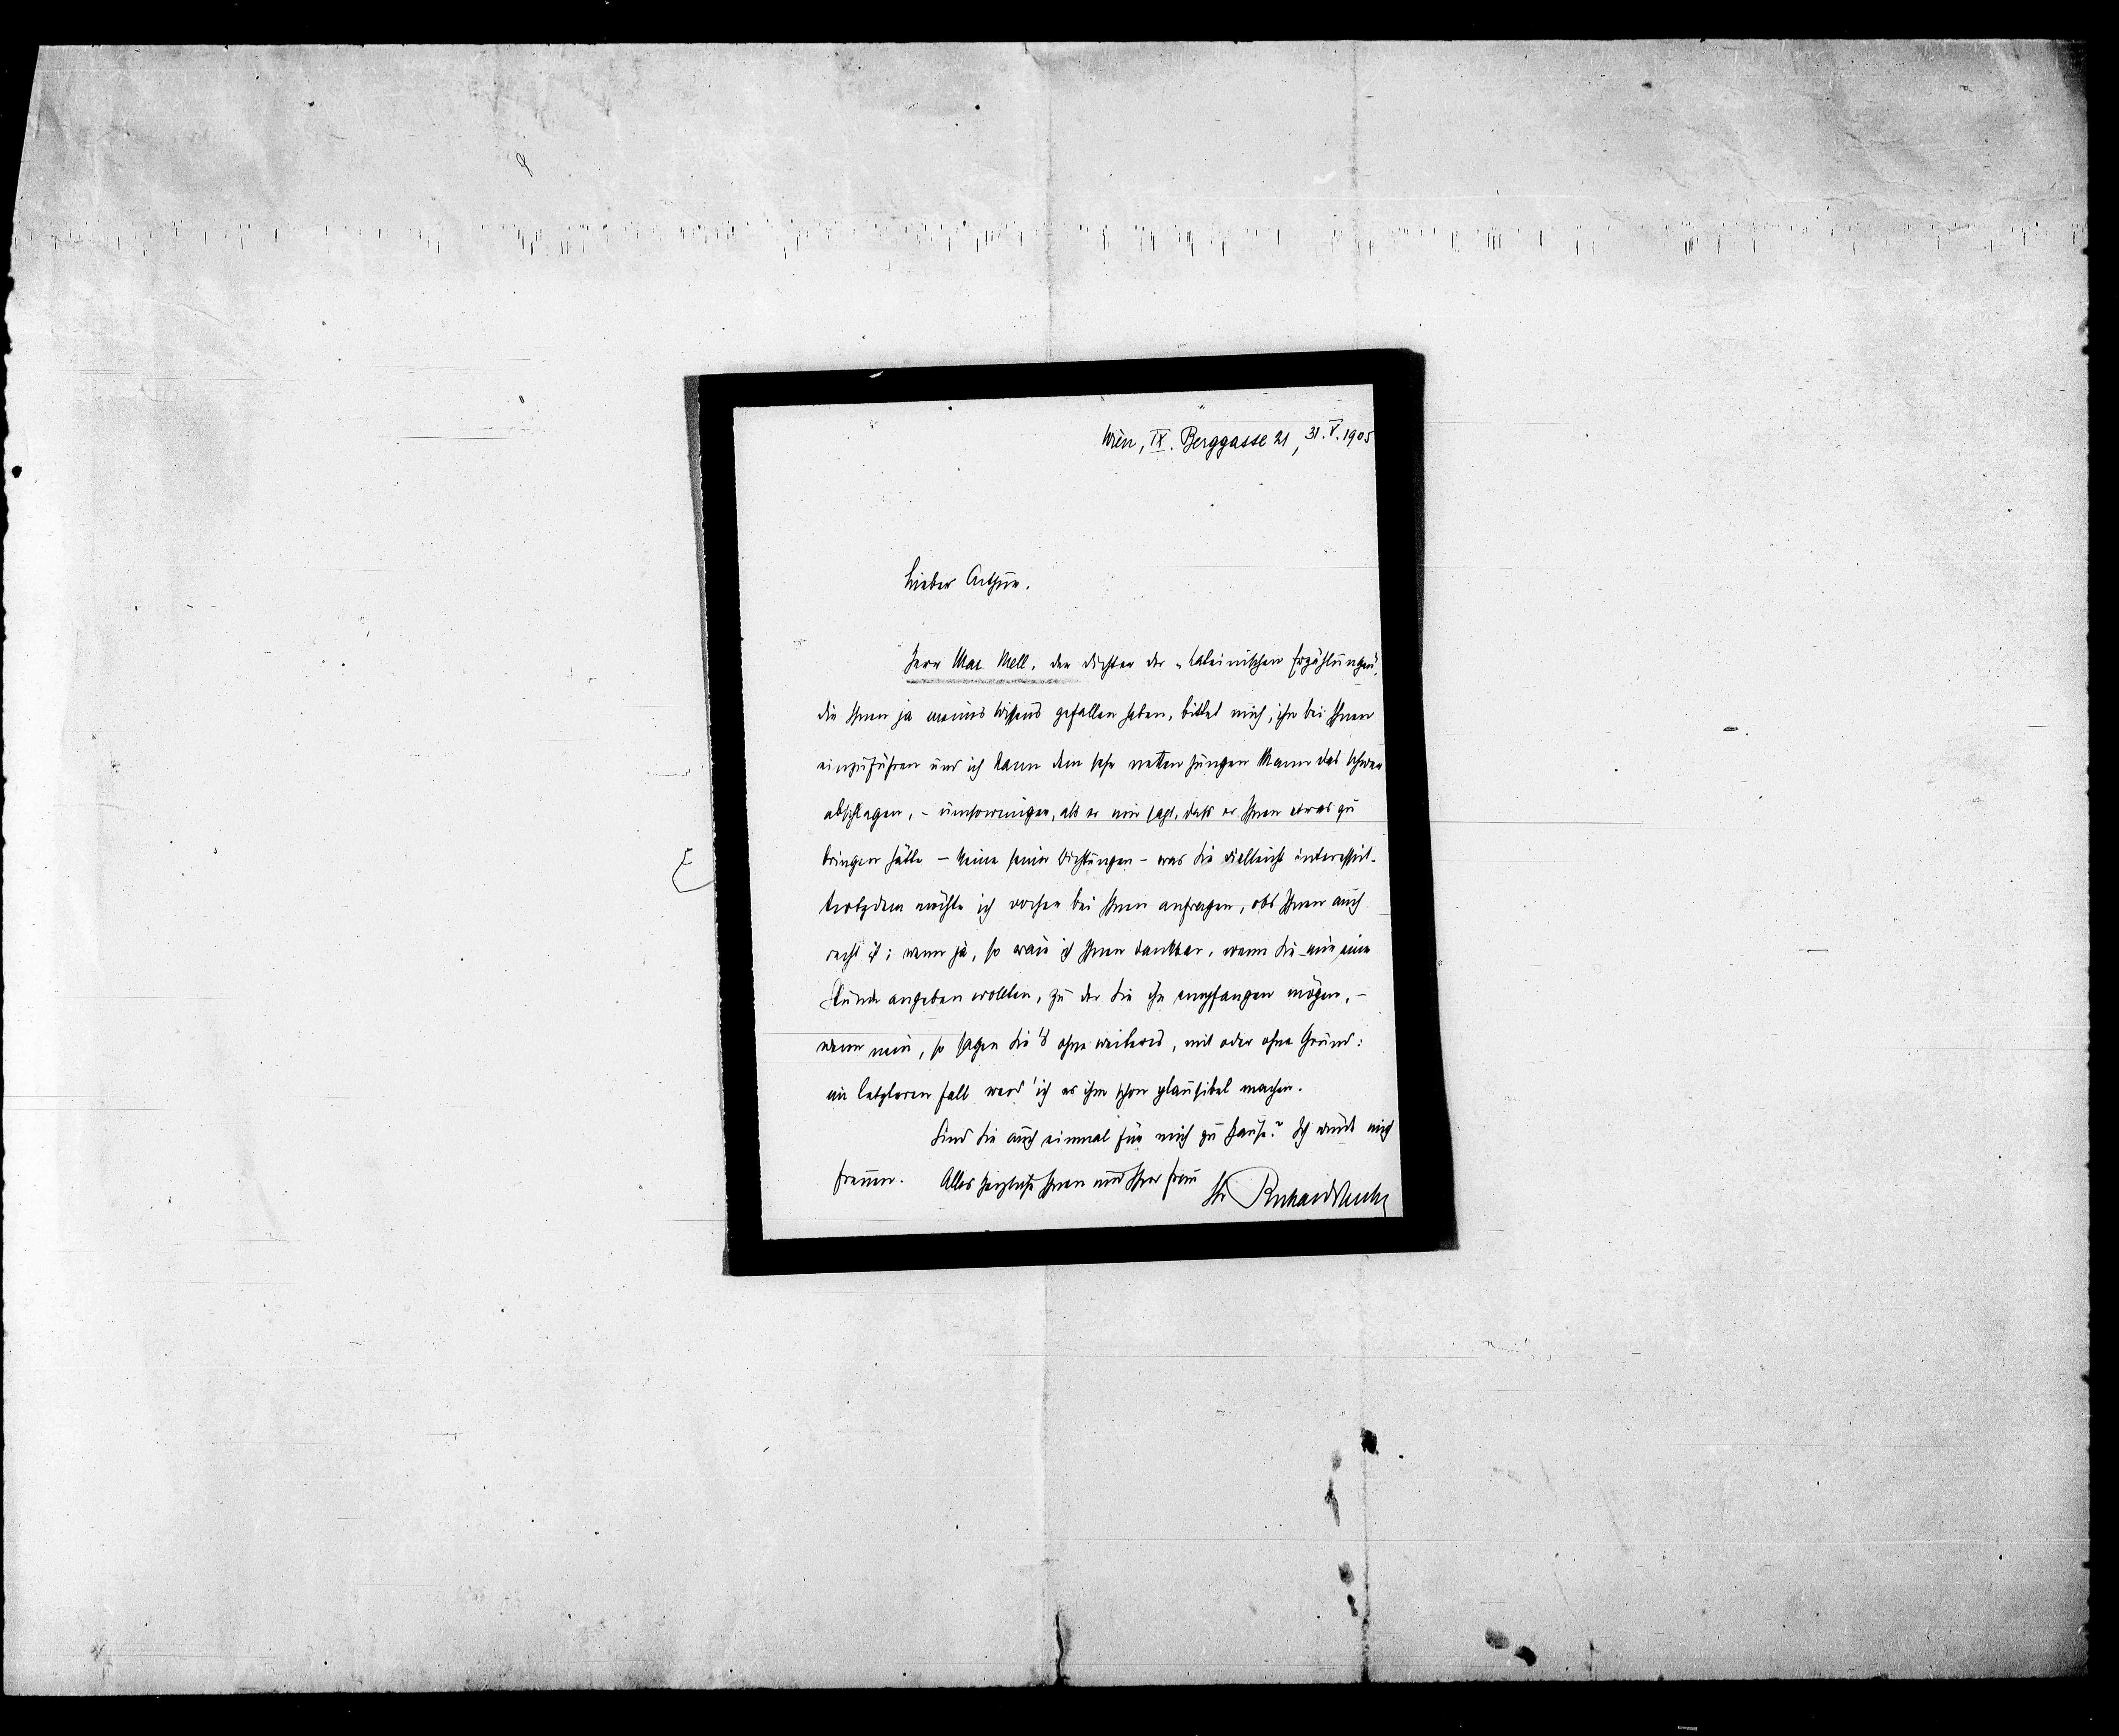 Wien, IX. Berggasse 21, 31. V. 1905
Lieber Arthur.
Herr Max Mell, der Dichter der „Lateinischen Erzählungen",
die Ihnen ja meines Wissens gefallen haben, bittet mich, ihn bei Ihnen
einzuführen und ich kann dem sehr netten jungen Mann das schwer
abschlagen, – umsoweniger, als er mir sagt, dass er Ihnen etwas zu
bringen hätte – keine seiner Dichtungen – was Sie vielleicht interessirt.
Trotzdem möchte ich vorher bei Ihnen anfragen, obs Ihnen auch
recht ist; wenn ja, so wär ich Ihnen dankbar, wenn Sie mir eine
Stunde angeben wollten, zu der Sie ihn empfangen mögen, –
wenn nein, so sagen Sie's ohne weiteres, mit oder ohne Grund:
im letzteren Fall werd' ich es ihm schon plausibel machen.
Sind Sie auch einmal für mich zu Hause? Ich würde mich
freuen. Alles Herzliche Ihnen und Ihrer Frau
Ihr Richard Specht